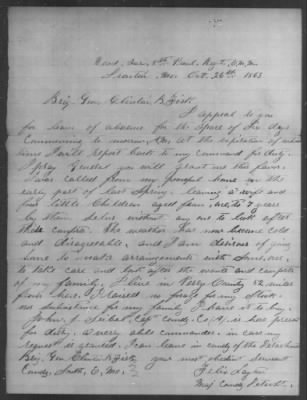 Head Qrs. 8th Provl. Regt. E.M.M.
Ironton Mo. Oct. 26th 1863
Brig. Gen. Clinton B. Fisk
I appeal to you
for leave of absence for the space of Six days
Commencing to morrow, at the expiration of which
time I will report back to my command for duty.
I pray General you will grant me this favor.
I was called from my peaceful home in the
early part of last Spring, leaving a wife and
four little Children aged from to 7 years
by them selves without any one to look after
their comforts. The weather has now become cold
and disagreeable, and I am desirous of going
home to make arrangements with Some one
to take care and look after the wants and comforts
of my family. I live in Perry County 52 miles
from here. I raised no forage for my Stock
no for my family I have it to buy.
John Capt. Comdg. Co. A, is here present
for duty. A very able commander, in case my
request is granted. I can leave in comdg. of the Detachment
Brig. Gen. Clinton B. Fisk your most obedient Servant
Comdg. South, E. Mo. Felix Layton
Maj. Comdg. Detcht.